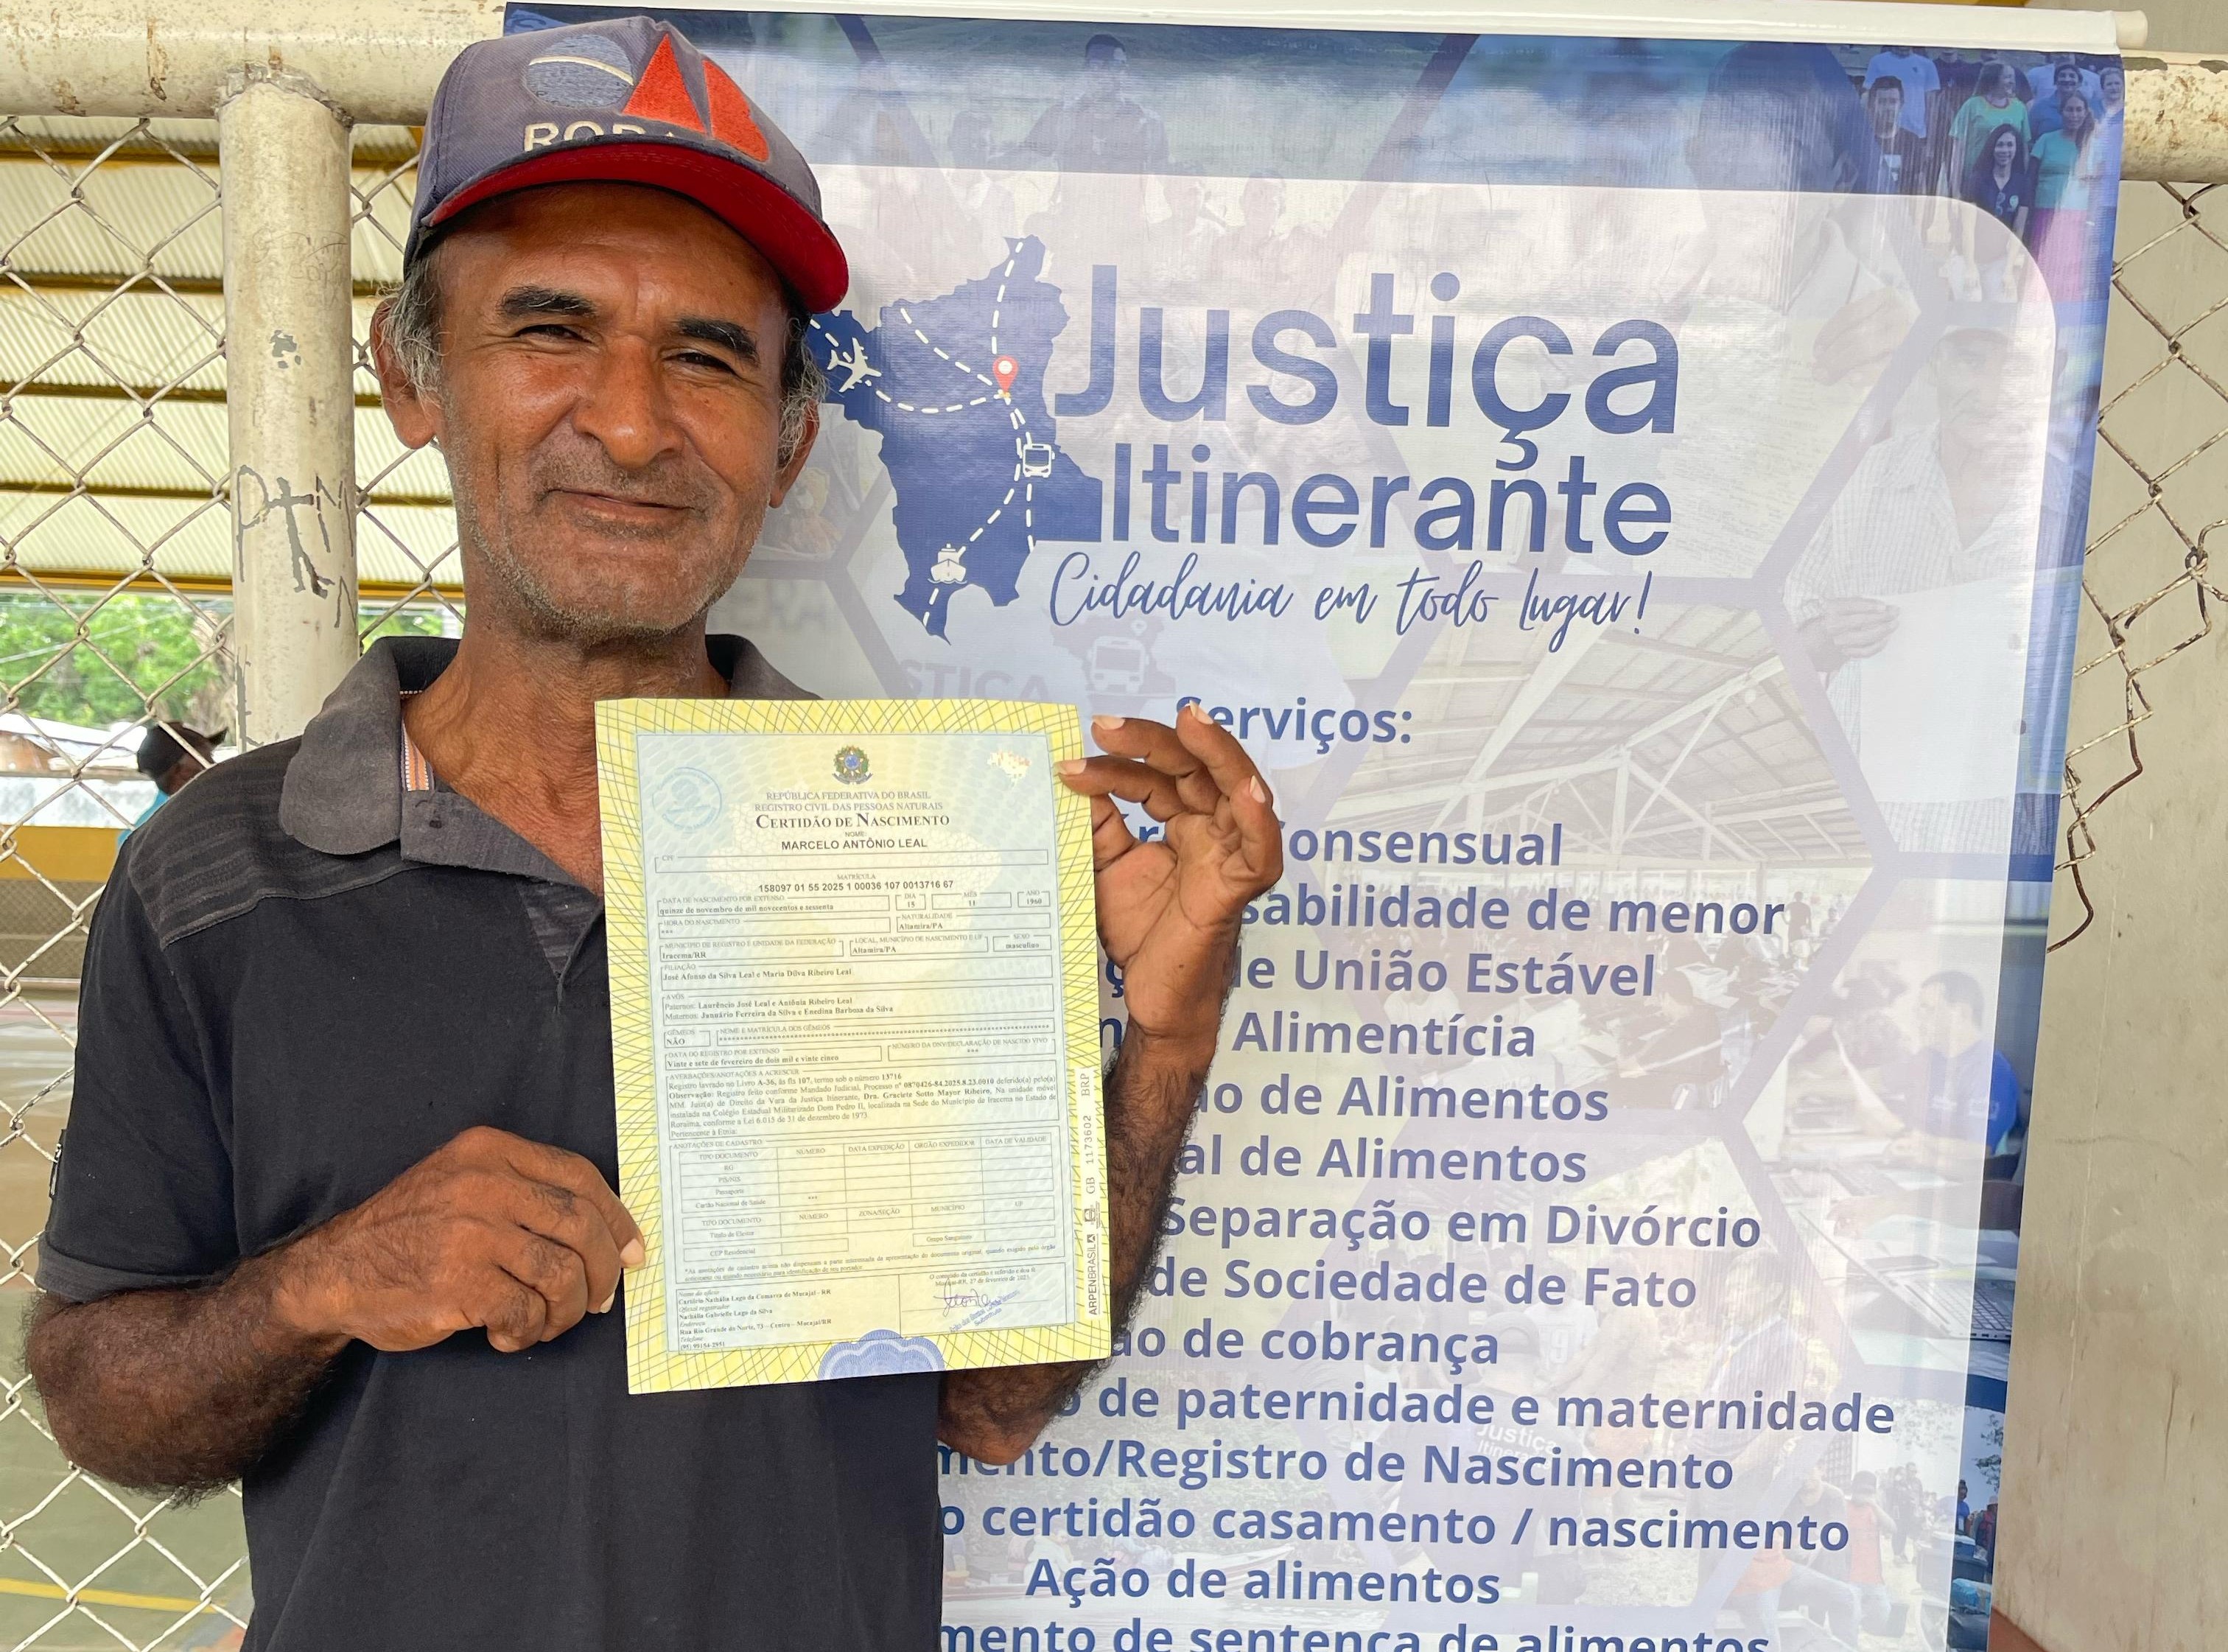 Justiça
Itinerante
Cidadania em todo lugar!
Serviços:
onsensual
sabilidade de menor
e União Estável
Alimentícia
ão de Alimentos
al de Alimentos
Separação em Divórcio
de Sociedade de Fato
ão de cobrança
de paternidade e maternidade
mento/Registro de Nascimento
o certidão casamento / nascimento
Ação de alimentos
mento de sentença de alimentos
REPÚBLICA FEDERATIVA DO BRASIL
REGISTRO CIVIL DAS PESSOAS NATURAIS
CERTIDÃO DE NASCIMENTO
NOME
MARCELO ANTÔNIO LEAL
CPF
MATRÍCULA
158097 01 55 2025 1 00036 107 0013716 67
DATA DE NASCIMENTO POR EXTENSO DIA MÊS ANO
quinze de novembro de mil novecentos e sessenta 15 11 1960
HORA DO NASCIMENTO NATURALIDADE
*** Altamira/PA
MUNICÍPIO DE REGISTRO E UNIDADE DA FEDERAÇÃO LOCAL, MUNICÍPIO DE NASCIMENTO E UF SEXO
Iracema/RR Altamira/PA masculino
FILIAÇÃO
José Afonso da Silva Leal e Maria Dilva Ribeiro Leal
AVÓS
Paternos: Laurêncio José Leal e Antônia Ribeiro Leal
Maternos: Januário Ferreira da Silva e Enedina Barbosa da Silva
GÊMEOS NOME E MATRÍCULA DOS GÊMEOS
NÃO
DATA DO REGISTRO POR EXTENSO NÚMERO DA DNV/DECLARAÇÃO DE NASCIDO VIVO
Vinte e sete de fevereiro de dois mil e vinte cinco ***
AVERBAÇÕES/ANOTAÇÕES A ACRESCER
Registro lavrado no Livro A-36, às fls 107, termo sob o número 13716
Observação: Registro feito conforme Mandado Judicial, Processo nº 0870426-84.2025.8.23.0010 deferido(a) pelo(a)
MM. Juiz(a) de Direito da Vara da Justiça Itinerante, Dra. Graciete Sotto Mayor Ribeiro, Na unidade móvel
instalada na Colégio Estadual Militarizado Dom Pedro II, localizada na Sede do Município de Iracema no Estado de
Roraima, conforme a Lei 6.015 de 31 de dezembro de 1973.
Pertencente à Etnia:
ANOTAÇÕES DE CADASTRO
TIPO DOCUMENTO NÚMERO DATA EXPEDIÇÃO ÓRGÃO EXPEDIDOR DATA DE VALIDADE
RG
PIS/NIS
Passaporte
Cartão Nacional de Saúde ***
TIPO DOCUMENTO NÚMERO ZONA/SEÇÃO MUNICÍPIO UF
Título de Eleitor
CEP Residencial Grupo Sanguíneo
Nome do ofício
Cartório Nathália Lago da Comarca de Mucajaí - RR
Oficial registrador
Nathália Gabrielle Lago da Silva
Endereço
Rua Rio Grande do Norte, 73 - Centro - Mucajaí/RR
Telefone
O conteúdo da certidão é verdadeiro e dou fé
Mucajaí-RR, 27 de fevereiro de 2025
ARPENBRASIL GB 1173602 BRP